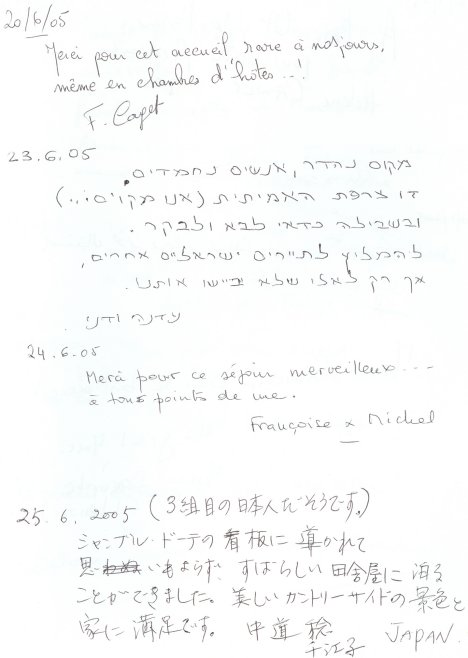 20/6/05
Merci pour cet accueil rare à nos jours,
même en chambres d'hôtes...!
F. Caget
23.6.05
מקום נהדר, אנשים נחמדים.
זו צרפת האמיתית (אנו מקוים...)
ובשבילה כדאי לבוא ולבקר.
להמליץ לתיירים ישראליים אחרים,
אך רק לאלו שלא יביישו אותנו.
עדנה ודני
24.6.05
Merci pour ce séjour merveilleux...
à tous points de vue.
Françoise x Michel
25.6.2005 (3組目の日本人だそうです。)
シャンブル・ドーテの看板に導かれて
思いもよらず すばらしい田舎屋に泊る
ことができました。美しいカントリーサイドの景色と
家に満足です。 中道 稔
千江子 JAPAN.